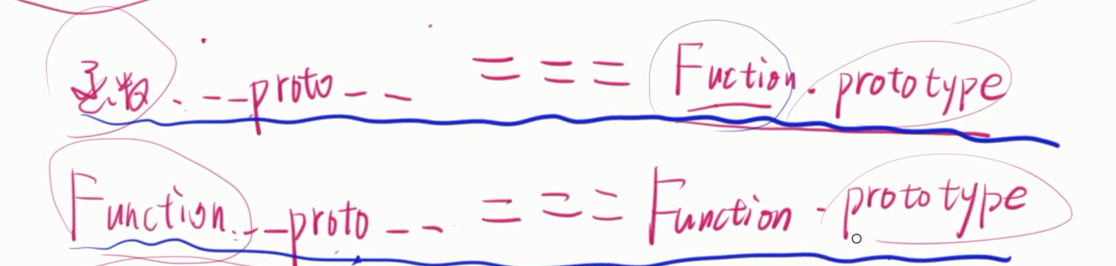 函数.__proto__ === Fuction.prototype
Function.__proto__ === Function.prototype